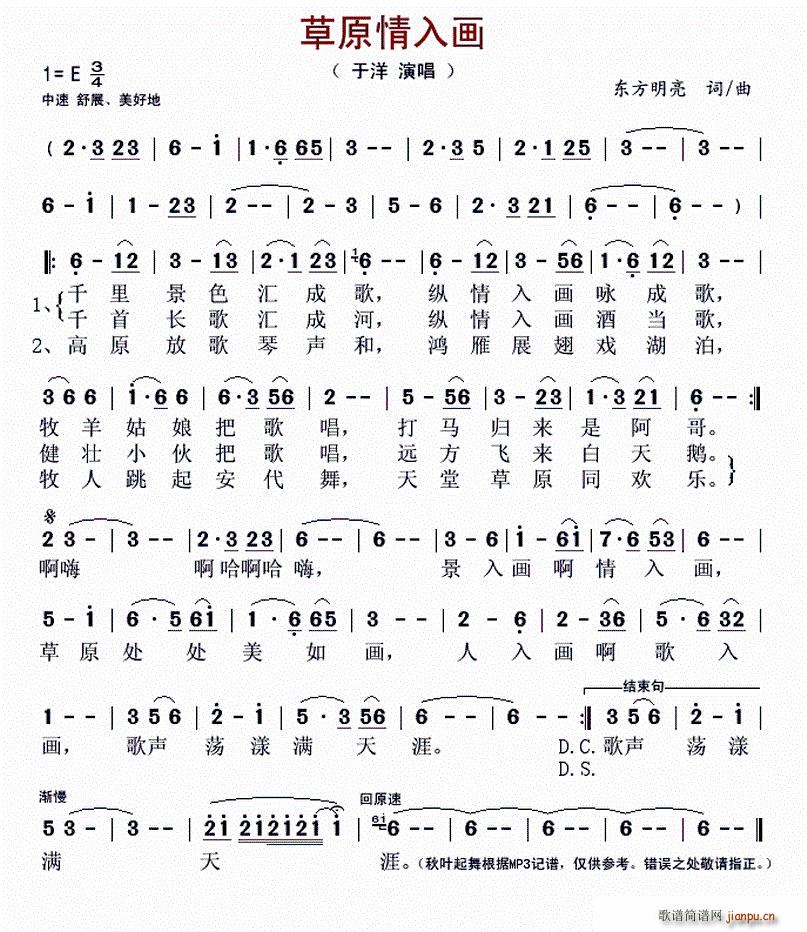 草原情入画
（ 于洋 演唱 ）
1= E 3/4
中速 舒展、美好地
东方明亮 词/曲
( 2·3 23 | 6 - i | 1·6 65 | 3 - - | 2·3 5 | 2·1 25 | 3 - - | 3 - - |
6 - i | 1 - 23 | 2 - - | 2 - 3 | 5 - 6 | 2·3 21 | 6 - - | 6 - - ) |
|: 6 - 12 | 3 - 13 | 2·1 23 | 1 6 - - | 6 - 12 | 3 - 56 | 1·6 12 | 3 - - |
1、千里景色汇成歌，纵情入画咏成歌，
千首长歌汇成河，纵情入画酒当歌，
2、高原放歌琴声和，鸿雁展翅戏湖泊，
3 6 6 | i·6 6 | 6·3 56 | 2 - - | 5 - 56 | 3 - 23 | 1·3 21 | 6 - - :|
牧羊姑娘把歌唱，打马归来是阿哥。
健壮小伙把歌唱，远方飞来白天鹅。
牧人跳起安代舞，天堂草原同欢乐。
2 3 - | 3 - - | 2·3 23 | 6 - - | 6 - - | 3 - 6 | i - 6i | 7·6 53 | 6 - - |
啊嗨 啊哈啊哈嗨， 景入画啊情入画，
5 - i | 6·5 6i | 1·6 65 | 3 - - | 2 - 6 | 2 - 36 | 5·6 32 |
草原处处美如画，人入画啊歌入
结束句
1 - - | 3 5 6 | 2 - i | 5·3 56 | 6 - - | 6 - - :| 3 5 6 | 2 - i |
画，歌声荡漾满天涯。 D.C.歌声荡漾
D.S.
渐慢 回原速
5 3 - | 3 - - | 2i 2i2i2i i | 6i 6 - - | 6 - - | 6 - - | 6 - - ||
满 天 涯。（秋叶起舞根据MP3记谱，仅供参考。错误之处敬请指正。）
歌谱简谱网 jianpu.cn